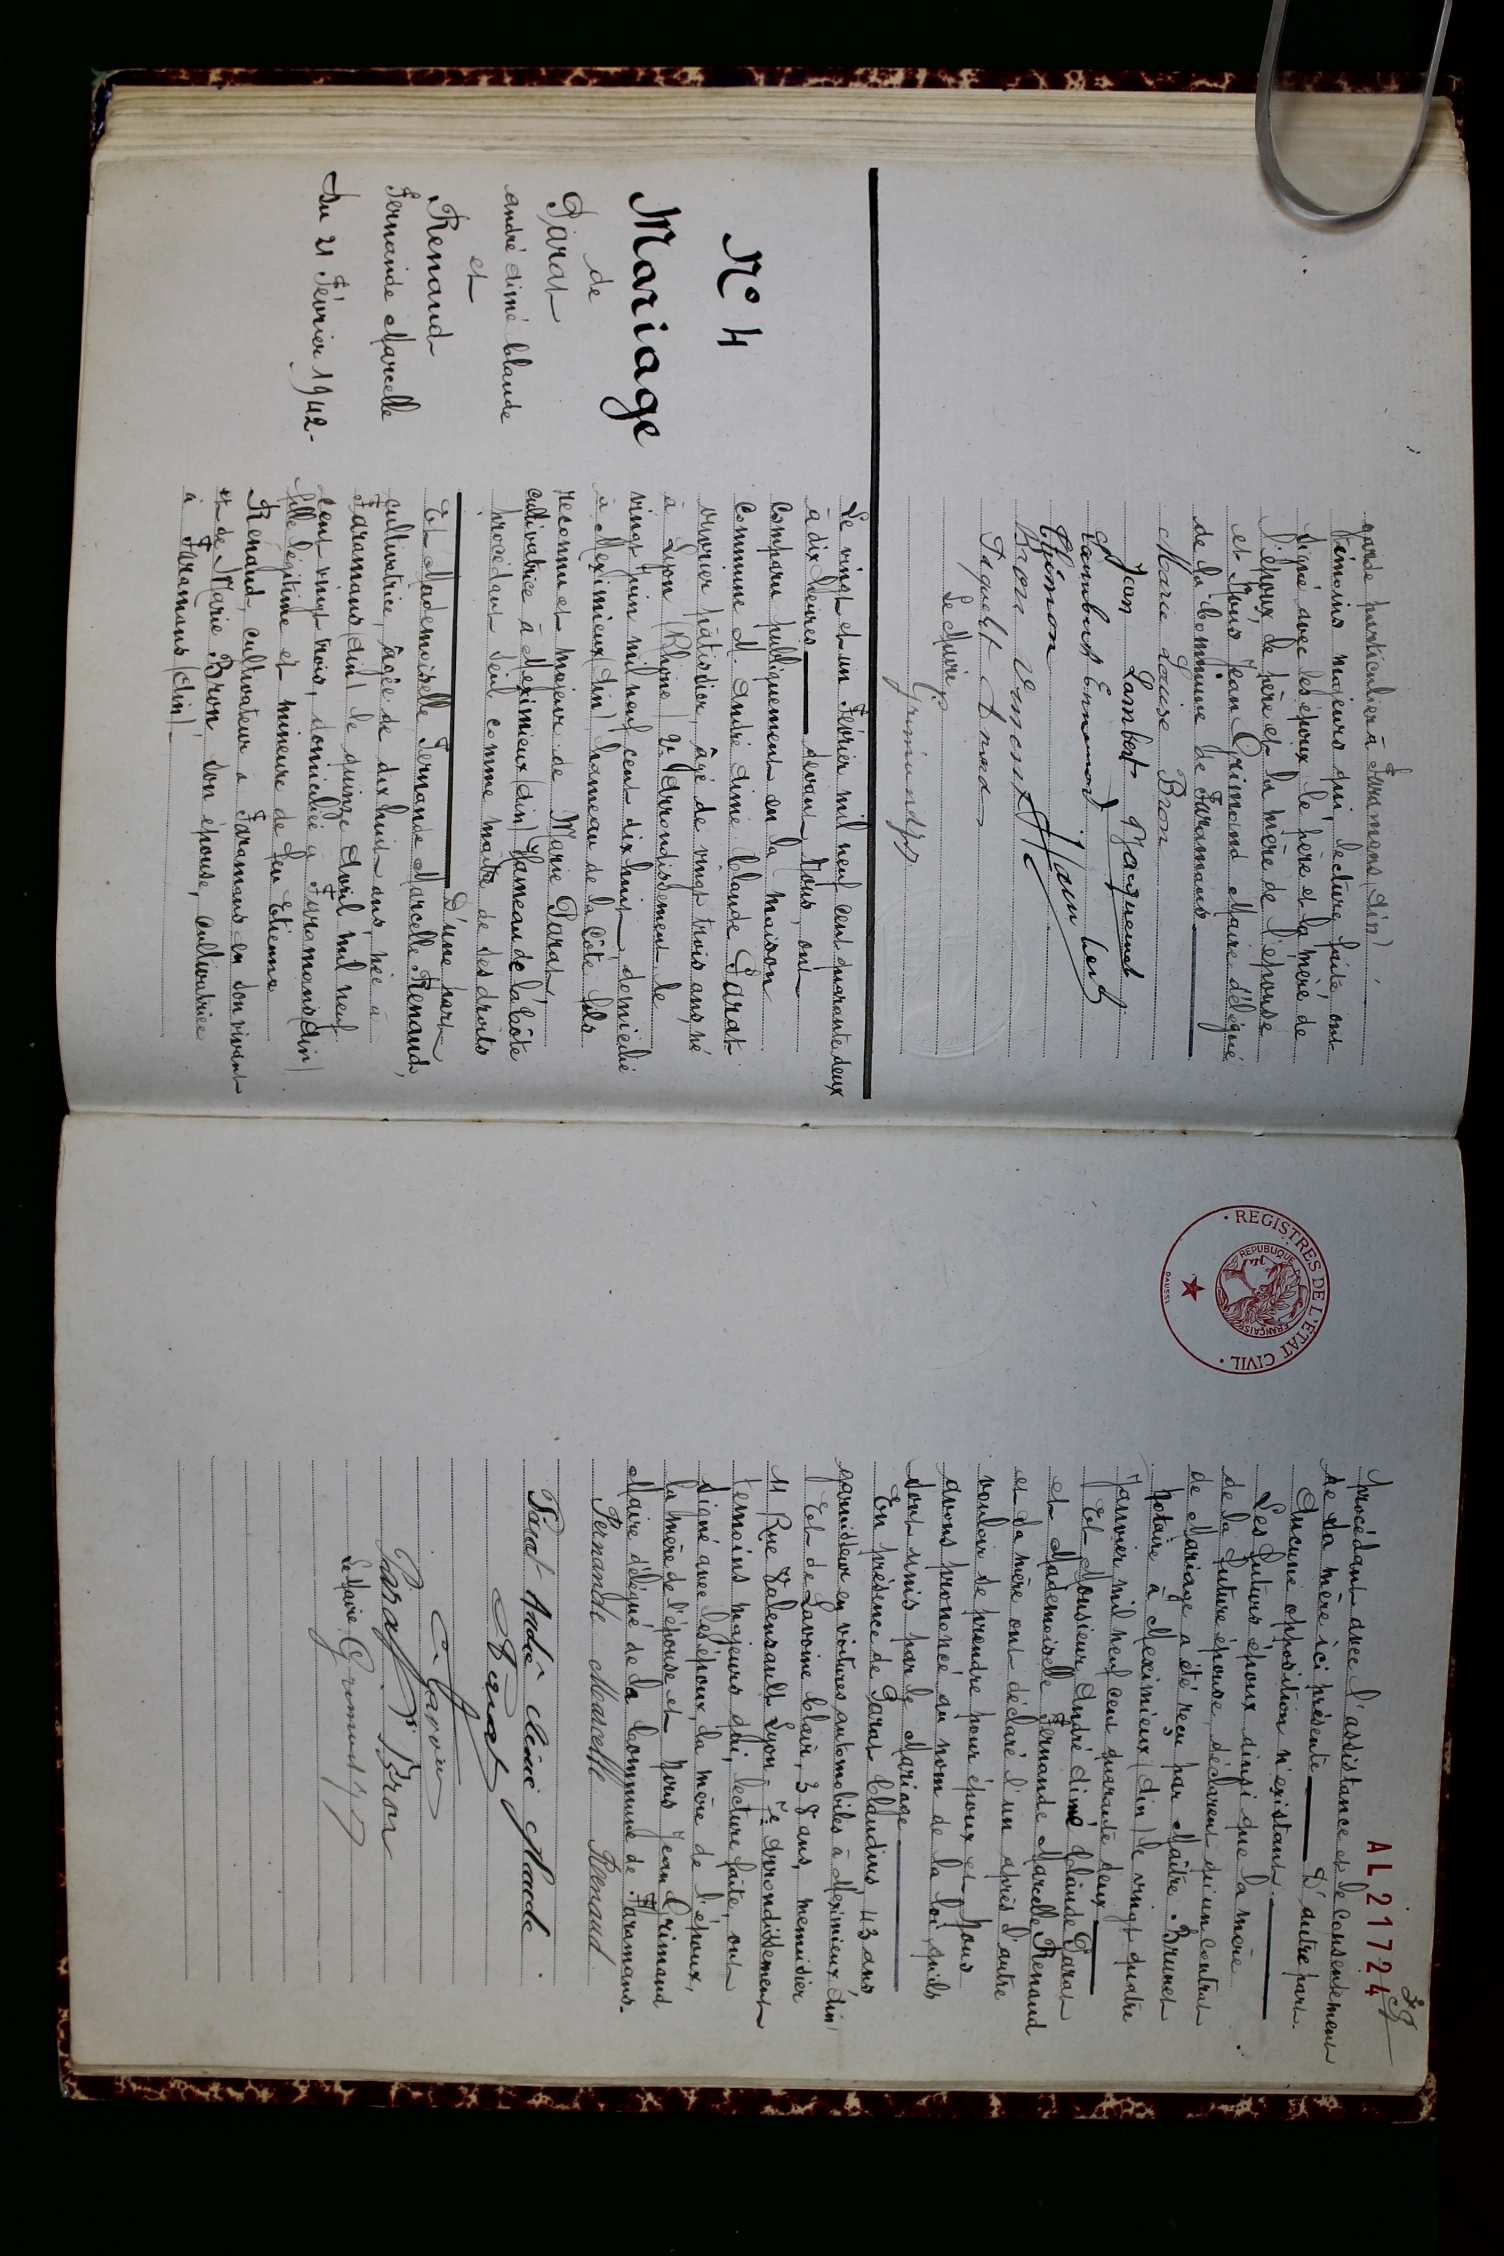 garde particulier à Faramans (Ain)
témoins majeurs qui, lecture faite, ont
signé avec les époux le père et la mère de
l'époux, le père et la mère de l'épouse
et Nous Jean Grimand Maire délégué
de la Commune de Faramans
Marie Louise Bron
Jean Lambert Jacquemet
Lambert Ennemond
Thimon Lambert
Bron Vemont
Paquet
Le Maire,
Grimand
N° 4
Mariage
de
Parat
André Aimé Claude
et
Renaud
Fernande Marcelle
Du 21 Février 1942-
Le vingt et un Février mil neuf cent quarante deux
à dix heures devant, Nous, ont
comparu publiquement en la maison
commune M. André Aimé Claude Parat
ouvrier pâtissier, âgé de vingt trois ans, né
à Lyon (Rhône) 2e Arrondissement le
vingt Juin mil neuf cent dix huit, domicilié
à Meximieux (Ain) hameau de la Côte fils
reconnu et majeur de Marie Parat,
cultivatrice à Meximieux (Ain) Hameau de la Côte
procédant seul comme maître de ses droits
D'une part
Et Mademoiselle Fernande Marcelle Renaud,
cultivatrice, âgée de dix huit ans, née à
Faramans (Ain) le quinze Avril mil neuf
cent vingt trois, domiciliée à Faramans (Ain)
fille légitime et mineure de feu Etienne
Renaud, cultivateur à Faramans en son vivant
et de Marie Bron, son épouse, cultivatrice
à Faramans (Ain)
AL 21724
28
procédant avec l'assistance et le consentement
de sa mère ici présente D'autre part.
Aucune opposition n'existant.
Les futurs époux ainsi que la mère
de la future épouse, déclarent qu'un contrat
de Mariage a été reçu par Maître Brunet
notaire à Meximieux (Ain) le vingt quatre
Janvier mil neuf cent quarante deux
Et Monsieur André Aimé Claude Parat
et Mademoiselle Fernande Marcelle Renaud
et sa mère ont déclaré l'un après l'autre
vouloir se prendre pour époux et Nous
avons prononcé au nom de la loi, qu'ils
sont unis par le Mariage
En présence de Parat Claudius, 43 ans
garnisseur en voitures automobiles à Meximieux (Ain)
Et de Lavoine Clair, 38 ans, menuisier
11 Rue Valensault Lyon - 7e Arrondissement
témoins majeurs qui, lecture faite, ont
signé avec les époux, la mère de l'époux,
la mère de l'épouse et Nous Jean Grimand
Maire délégué de la Commune de Faramans.
Fernande Marcelle Renaud
Parat André Aimé Claude
Parat
Parat Bron
Le Maire Grimand
REGISTRES DE L'ETAT CIVIL
REPUBLIQUE FRANÇAISE
DAUSSI